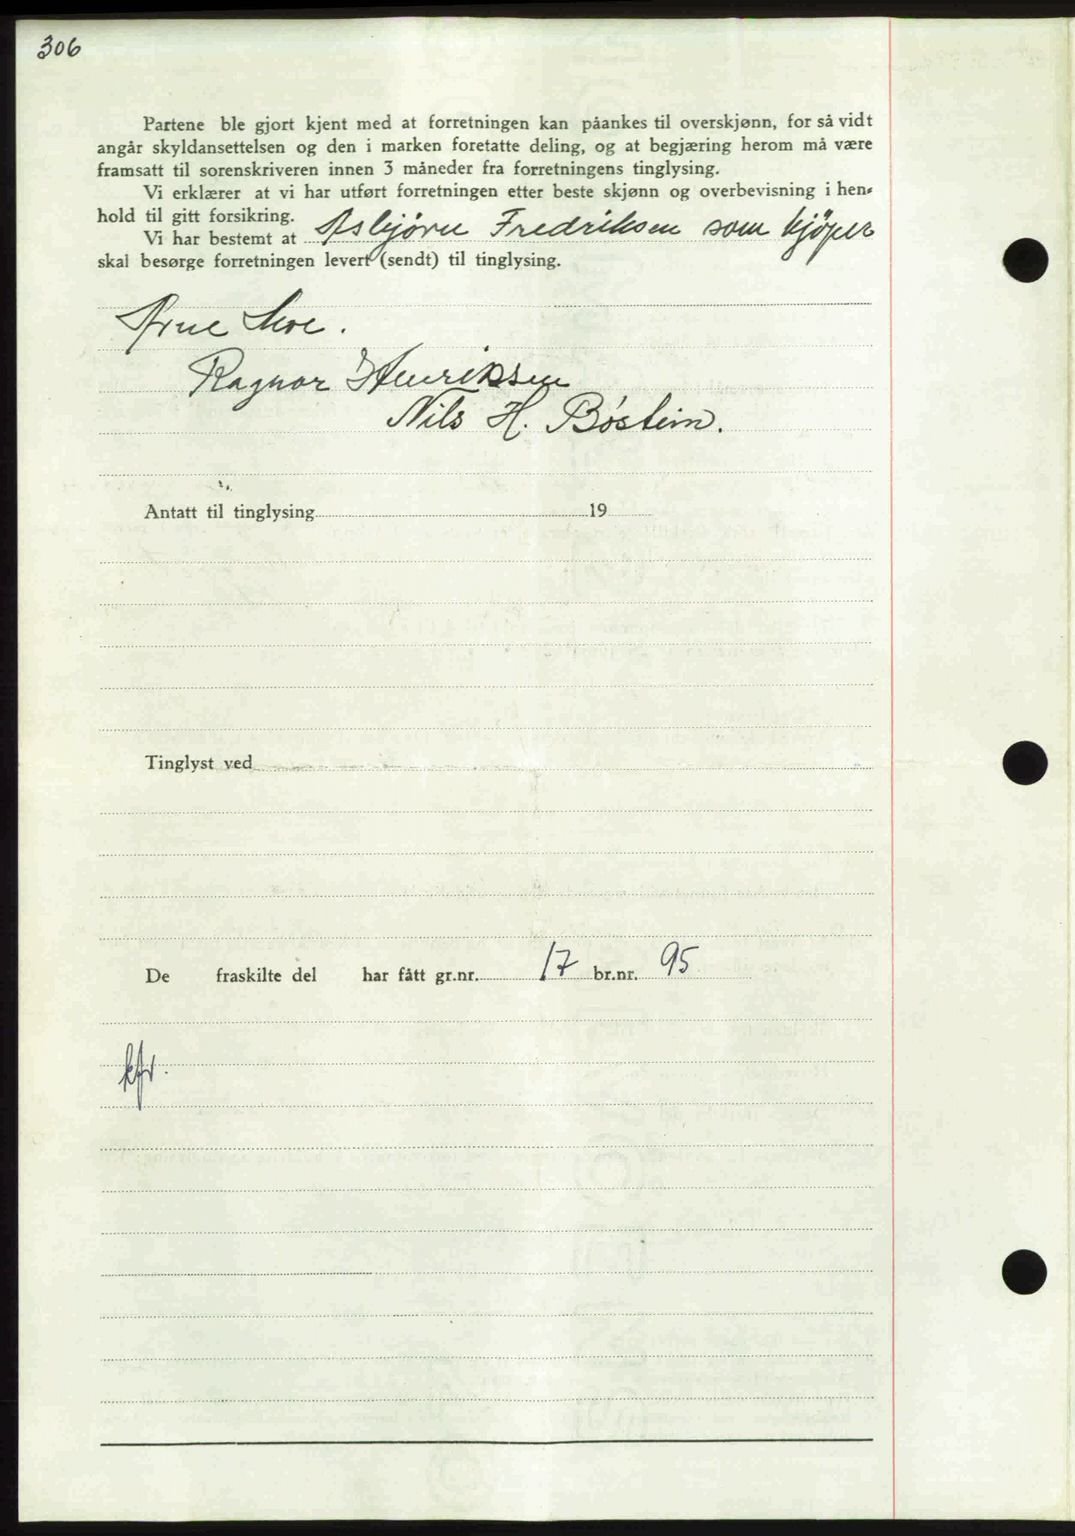 306
Partene ble gjort kjent med at forretningen kan påankes til overskjønn, for så vidt
angår skyldansettelsen og den i marken foretatte deling, og at begjæring herom må være
framsatt til sorenskriveren innen 3 måneder fra forretningens tinglysing.
Vi erklærer at vi har utført forretningen etter beste skjønn og overbevisning i hen-
hold til gitt forsikring.
Vi har bestemt at Asbjørn Fredriksen som kjøper
skal besørge forretningen levert (sendt) til tinglysing.
Arne Moe.
Ragnar Henriksen
Nils H. Bøstein.
Antatt til tinglysing 19
Tinglyst ved
De fraskilte del har fått gr.nr. 17 br.nr. 95
kfr.